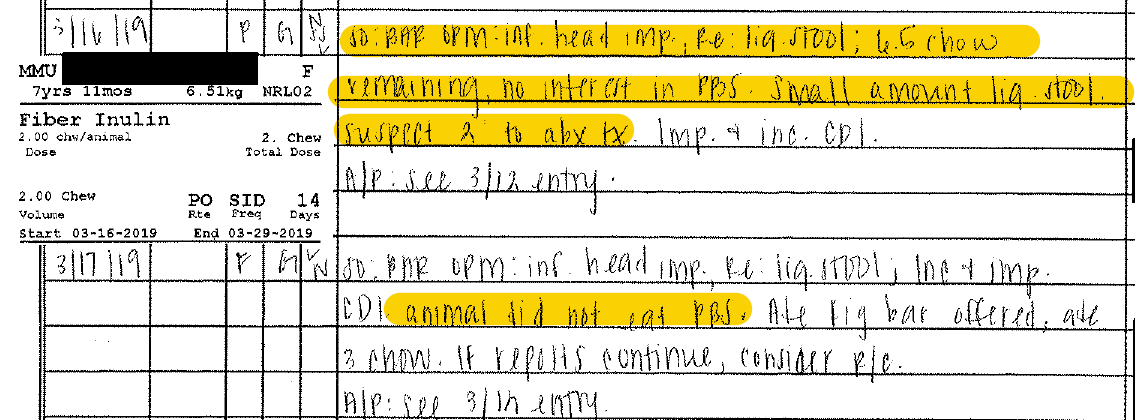 3/16/19 P G SO: BAR OPM: inf. head imp., Re: liq. stool; 6.5 chow
MMU F
remaining, no interest in PBS. Small amount liq. stool.
7yrs 11mos 6.51kg NRL02
Fiber Inulin
suspect 2° to abx tx. Imp. + inc. CDI.
2.00 chw/animal 2. Chew
Dose Total Dose
A/P: see 3/12 entry.
2.00 Chew PO SID 14
Volume Rte Freq Days
Start 03-16-2019 End 03-29-2019
3/17/19 F G SO: BAR OPM: inf. head imp., Re: liq. stool; Inc + imp.
CDI. animal did not eat PBS. Ate fig bar offered, ate
3 chow. If reports continue, consider R/C.
A/P: see 3/12 entry.